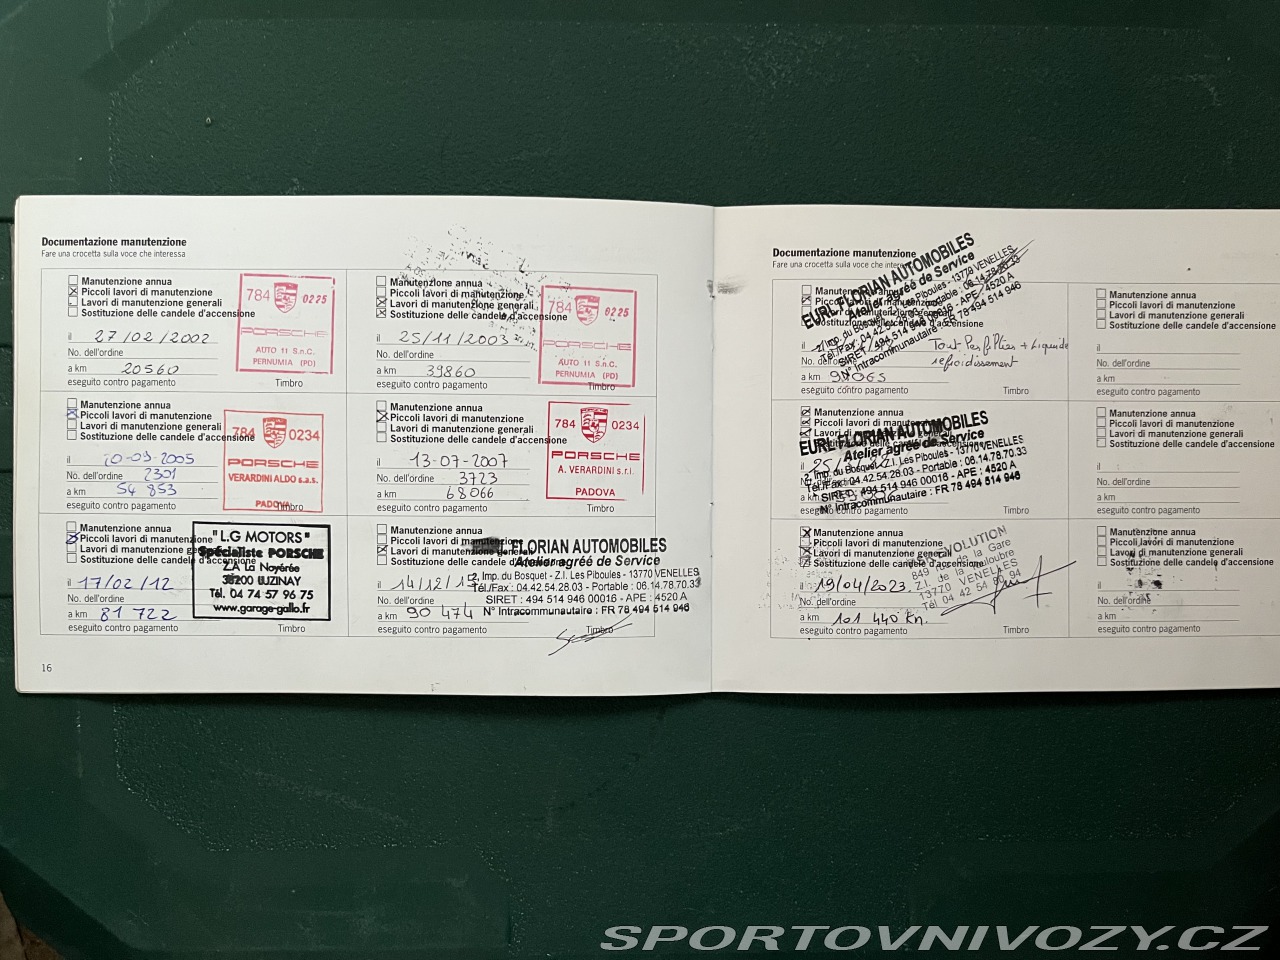 Documentazione manutenzione
Fare una crocetta sulla voce che interessa
Manutenzione annua
Piccoli lavori di manutenzione
Lavori di manutenzione generali
Sostituzione delle candele d'accensione
784 0225
PORSCHE
AUTO 11 S.n.C.
PERNUMIA (PD)
il 27/02/2002
No. dell'ordine
a km 20560
eseguito contro pagamento
Timbro
Manutenzione annua
Piccoli lavori di manutenzione
Lavori di manutenzione generali
Sostituzione delle candele d'accensione
784 0225
PORSCHE
AUTO 11 S.n.C.
PERNUMIA (PD)
il 25/11/2003
No. dell'ordine
a km 39860
eseguito contro pagamento
Timbro
Manutenzione annua
Piccoli lavori di manutenzione
Lavori di manutenzione generali
Sostituzione delle candele d'accensione
784 0234
PORSCHE
VERARDINI ALDO s.a.s.
PADOVA
il 20-09-2005
No. dell'ordine 2301
a km 54 853
eseguito contro pagamento
Timbro
Manutenzione annua
Piccoli lavori di manutenzione
Lavori di manutenzione generali
Sostituzione delle candele d'accensione
784 0234
PORSCHE
A. VERARDINI s.r.l.
PADOVA
il 13-07-2007
No. dell'ordine 3723
a km 68066
eseguito contro pagamento
Manutenzione annua
Piccoli lavori di manutenzione
Lavori di manutenzione generali
Sostituzione delle candele d'accensione
"L.G MOTORS"
Spécialiste PORSCHE
Z.A La Noyérée
38200 LUZINAY
Tél. 04 74 57 96 75
www.garage-gallo.fr
il 17/02/12
No. dell'ordine
a km 81 722
eseguito contro pagamento
Timbro
Manutenzione annua
Piccoli lavori di manutenzione
Lavori di manutenzione generali
Sostituzione delle candele d'accensione
FLORIAN AUTOMOBILES
Atelier agréé de Service
2, Imp. du Bosquet - Z.I. Les Piboules - 13770 VENELLES
Tél./Fax : 04.42.54.28.03 - Portable : 06.14.78.70.33
SIRET : 494 514 946 00016 - APE : 4520 A
N° Intracommunautaire : FR 78 494 514 946
il 14/12/
No. dell'ordine
a km 90 474
eseguito contro pagamento
Timbro
16
Documentazione manutenzione
Fare una crocetta sulla voce che interessa
Manutenzione annua
Piccoli lavori di manutenzione
Lavori di manutenzione generali
Sostituzione delle candele d'accensione
EURL FLORIAN AUTOMOBILES
Atelier agréé de Service
2, Imp. du Bosquet - Z.I. Les Piboules - 13770 VENELLES
Tél./Fax : 04.42.54.28.03 - Portable : 06.14.78.70.33
SIRET : 494 514 946 00016 - APE : 4520 A
N° Intracommunautaire : FR 78 494 514 946
Tout Les filtres + Liquide
refroidissement
il
No. dell'ordine
a km
eseguito contro pagamento
Manutenzione annua
Piccoli lavori di manutenzione
Lavori di manutenzione generali
Sostituzione delle candele d'accensione
il
No. dell'ordine
a km
eseguito contro pagamento
Manutenzione annua
Piccoli lavori di manutenzione
Lavori di manutenzione generali
EURL FLORIAN AUTOMOBILES
Atelier agréé de Service
2, Imp. du Bosquet - Z.I. Les Piboules - 13770 VENELLES
Tél./Fax : 04.42.54.28.03 - Portable : 06.14.78.70.33
SIRET : 494 514 946 00016 - APE : 4520 A
N° Intracommunautaire : FR 78 494 514 946
il
a km
eseguito contro pagamento
Manutenzione annua
Piccoli lavori di manutenzione
Lavori di manutenzione generali
Sostituzione delle candele d'accensione
il
No. dell'ordine
a km
eseguito contro pagamento
Manutenzione annua
Piccoli lavori di manutenzione
Lavori di manutenzione generali
Sostituzione delle candele d'accensione
849 Rue de la Gare
Z.I. de la Touloubre
13770 VENELLES
Tél 04 42 54 80 94
il 19/04/2023
No. dell'ordine
a km 101 440 km.
eseguito contro pagamento
Timbro
Manutenzione annua
Piccoli lavori di manutenzione
Lavori di manutenzione generali
Sostituzione delle candele d'accensione
il
No. dell'ordine
a km
eseguito contro pagamento
SPORTOVNIVOZY.CZ